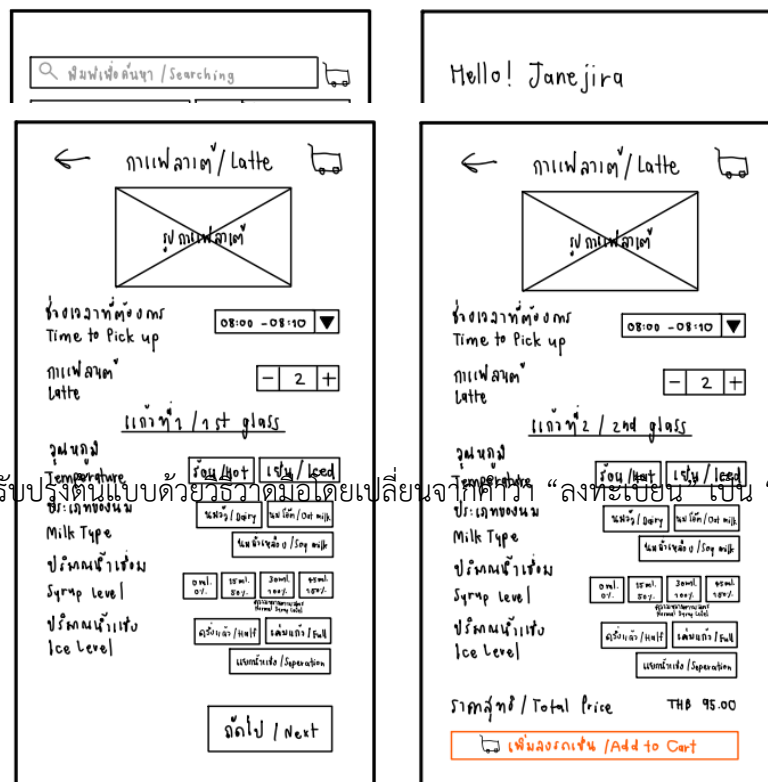 พิมพ์เพื่อค้นหา / Searching
Hello! Janejira
กาแฟลาเต้ / Latte
รูปกาแฟลาเต้
ช่วงเวลาที่ต้องการ
Time to Pick up
08:00 - 08:10
กาแฟลาเต้
Latte
- 2 +
แก้วที่ 1 / 1st glass
อุณหภูมิ
Temperature
ร้อน / Hot
เย็น / Iced
ประเภทของนม
Milk Type
นมวัว / Dairy
นมโอ๊ต / Oat milk
นมถั่วเหลือง / Soy milk
ปริมาณน้ำเชื่อม
Syrup Level
0 ml. 0%.
15 ml. 50%.
30 ml. 100%.
45 ml. 150%.
Normal Syrup Level
ปริมาณน้ำแข็ง
Ice Level
ครึ่งแก้ว / Half
เต็มแก้ว / Full
แยกน้ำแข็ง / Seperation
ถัดไป / Next
กาแฟลาเต้ / Latte
รูปกาแฟลาเต้
ช่วงเวลาที่ต้องการ
Time to Pick up
08:00 - 08:10
กาแฟลาเต้
Latte
- 2 +
แก้วที่ 2 / 2nd glass
อุณหภูมิ
Temperature
ร้อน / Hot
เย็น / Iced
ประเภทของนม
Milk Type
นมวัว / Dairy
นมโอ๊ต / Oat milk
นมถั่วเหลือง / Soy milk
ปริมาณน้ำเชื่อม
Syrup Level
0 ml. 0%.
15 ml. 50%.
30 ml. 100%.
45 ml. 150%.
Normal Syrup Level
ปริมาณน้ำแข็ง
Ice Level
ครึ่งแก้ว / Half
เต็มแก้ว / Full
แยกน้ำแข็ง / Seperation
ราคาสุทธิ / Total Price THB 95.00
เพิ่มลงรถเข็น / Add to Cart
รับปรุงต้นแบบด้วยวิธีวาดมือโดยเปลี่ยนจากคำว่า “ลงทะเบียน” เป็น “